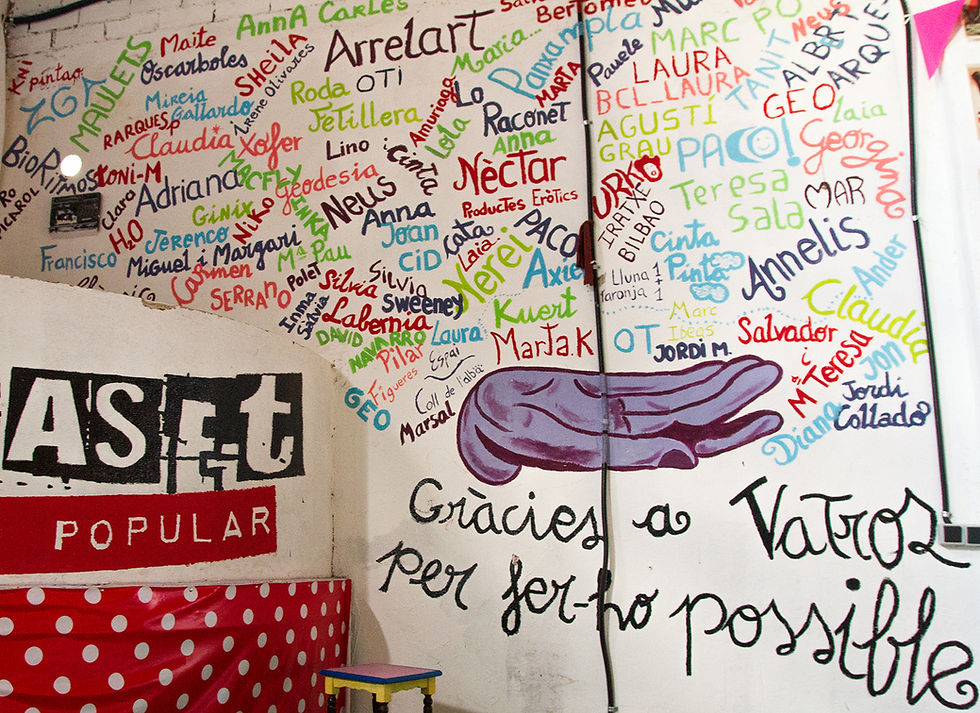 AnnA Carles
Bertomeu
Maite
Arrelart
Maria...
Panxampla
MARC PO
Neus
MAULETS
Oscarboles
SHeilA
Pauele
LAURA
TANIT
ALBRT
pintao
ZGA
Mireia
Gallardo
Irene Olivares
Roda
OTI
MARTA
BCL_LAURA
GEO
Laia
RARQUESP
Jetillera
Amuriaga
Lola
Lo
Raconet
Anna
AGUSTÍ
GRAU
PACO!
Georgina
Claudia
Xolfer
Lino
Cinta
Nèctar
Productes Eròtics
Teresa
Sala
MAR
BioRitmos
Toni-M
Adriana
MCFLY
Geodesia
Neus
IRATXE
BILBAO
Claro
Ginix
Niko
ENKA
Anna
Joan
PACO
H2O
Jerenco
Cata
Laia...
Cinta
Pinta
Annelis
Francisco
Miguel i Margari
Mª Pau
CiD
Nerei
Axie
Ander
Carmen
SERRANO
Polet
Silvia
Silvia
Sweeney
Lluna 1
Taronja 1
Claudia
Inma
Salvia
Labernia
Kuert
Marc
Ibeas
DAVID
NAVARRO
Laura
Marta.K
OT
JORDI M.
Salvador
i
Mª Teresa
Jon
Pilar
Figueres
Espai
Coll de l'albà
GEO
Marsal
Jordi
Collado
Diana
ASet
POPULAR
Gràcies a Vatros
per fer-ho possible